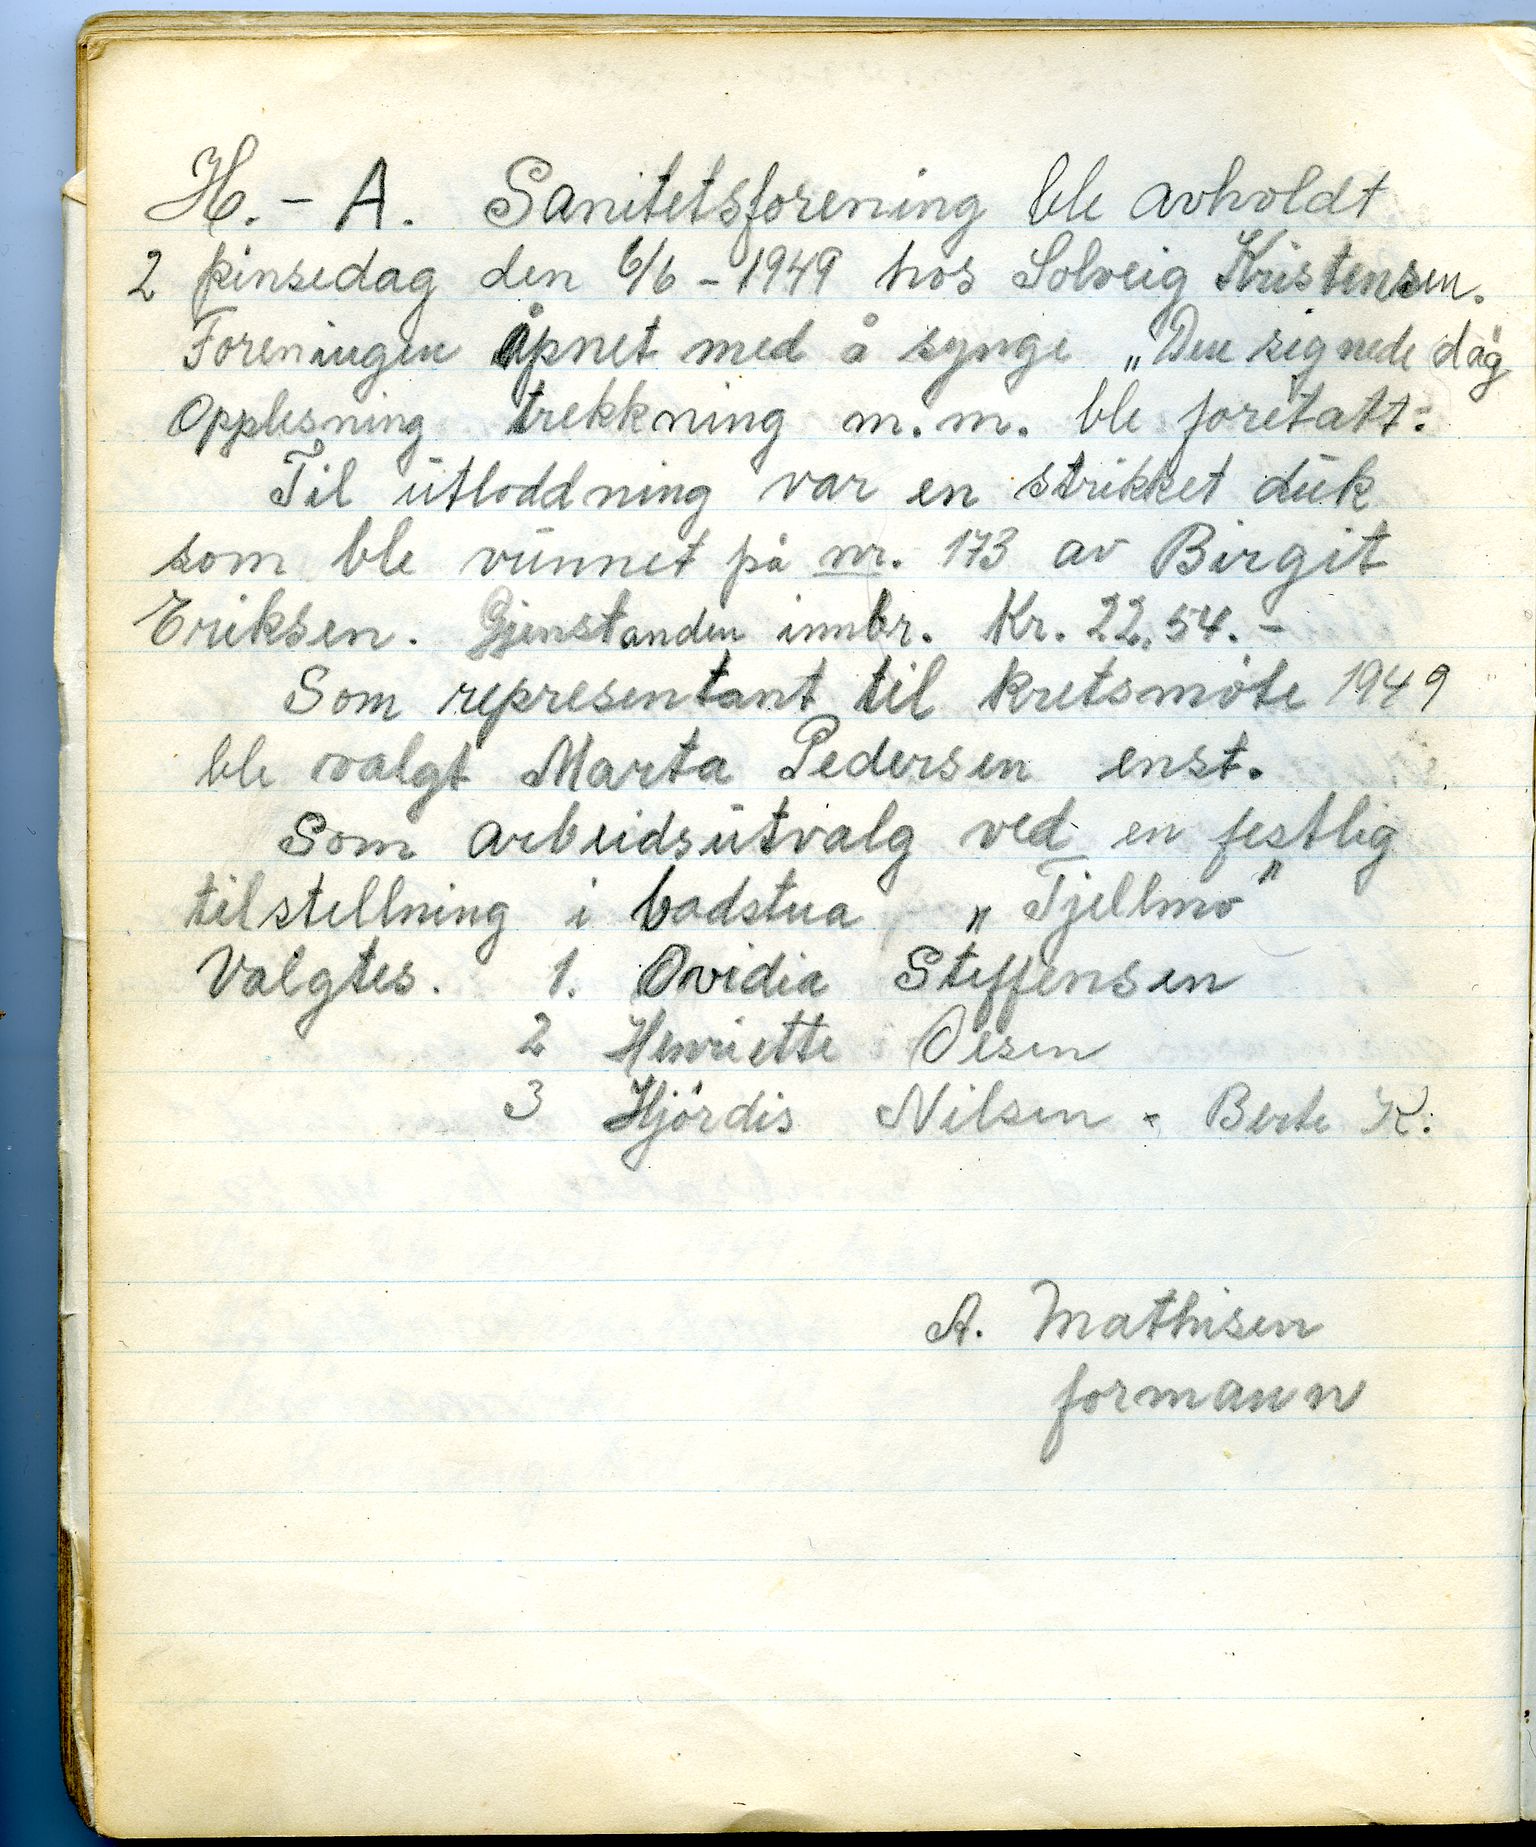 H. - A. Sanitetsforening ble avholdt
2 pinsedag den 6/6 - 1949 hos Solveig Kristensen.
Foreningen åpnet med å synge „Den signede dag"
Opplesning trekkning m.m. ble foretatt:
Til utloddning var en strikket duk
som ble vunnet på nr. 173 av Birgit
Eriksen. Gjenstanden innbr. Kr. 22.54. -
Som representant til kretsmøte 1949
ble valgt Marta Pedersen enst.
Som arbeidsutvalg ved en festlig
tilstellning i badstua „Tjellmo"
Valgtes. 1. Ovidia Steffensen
2 Henriette Olsen
3 Hjördis Nilsen - Berte K:
A. Mathisen
formann